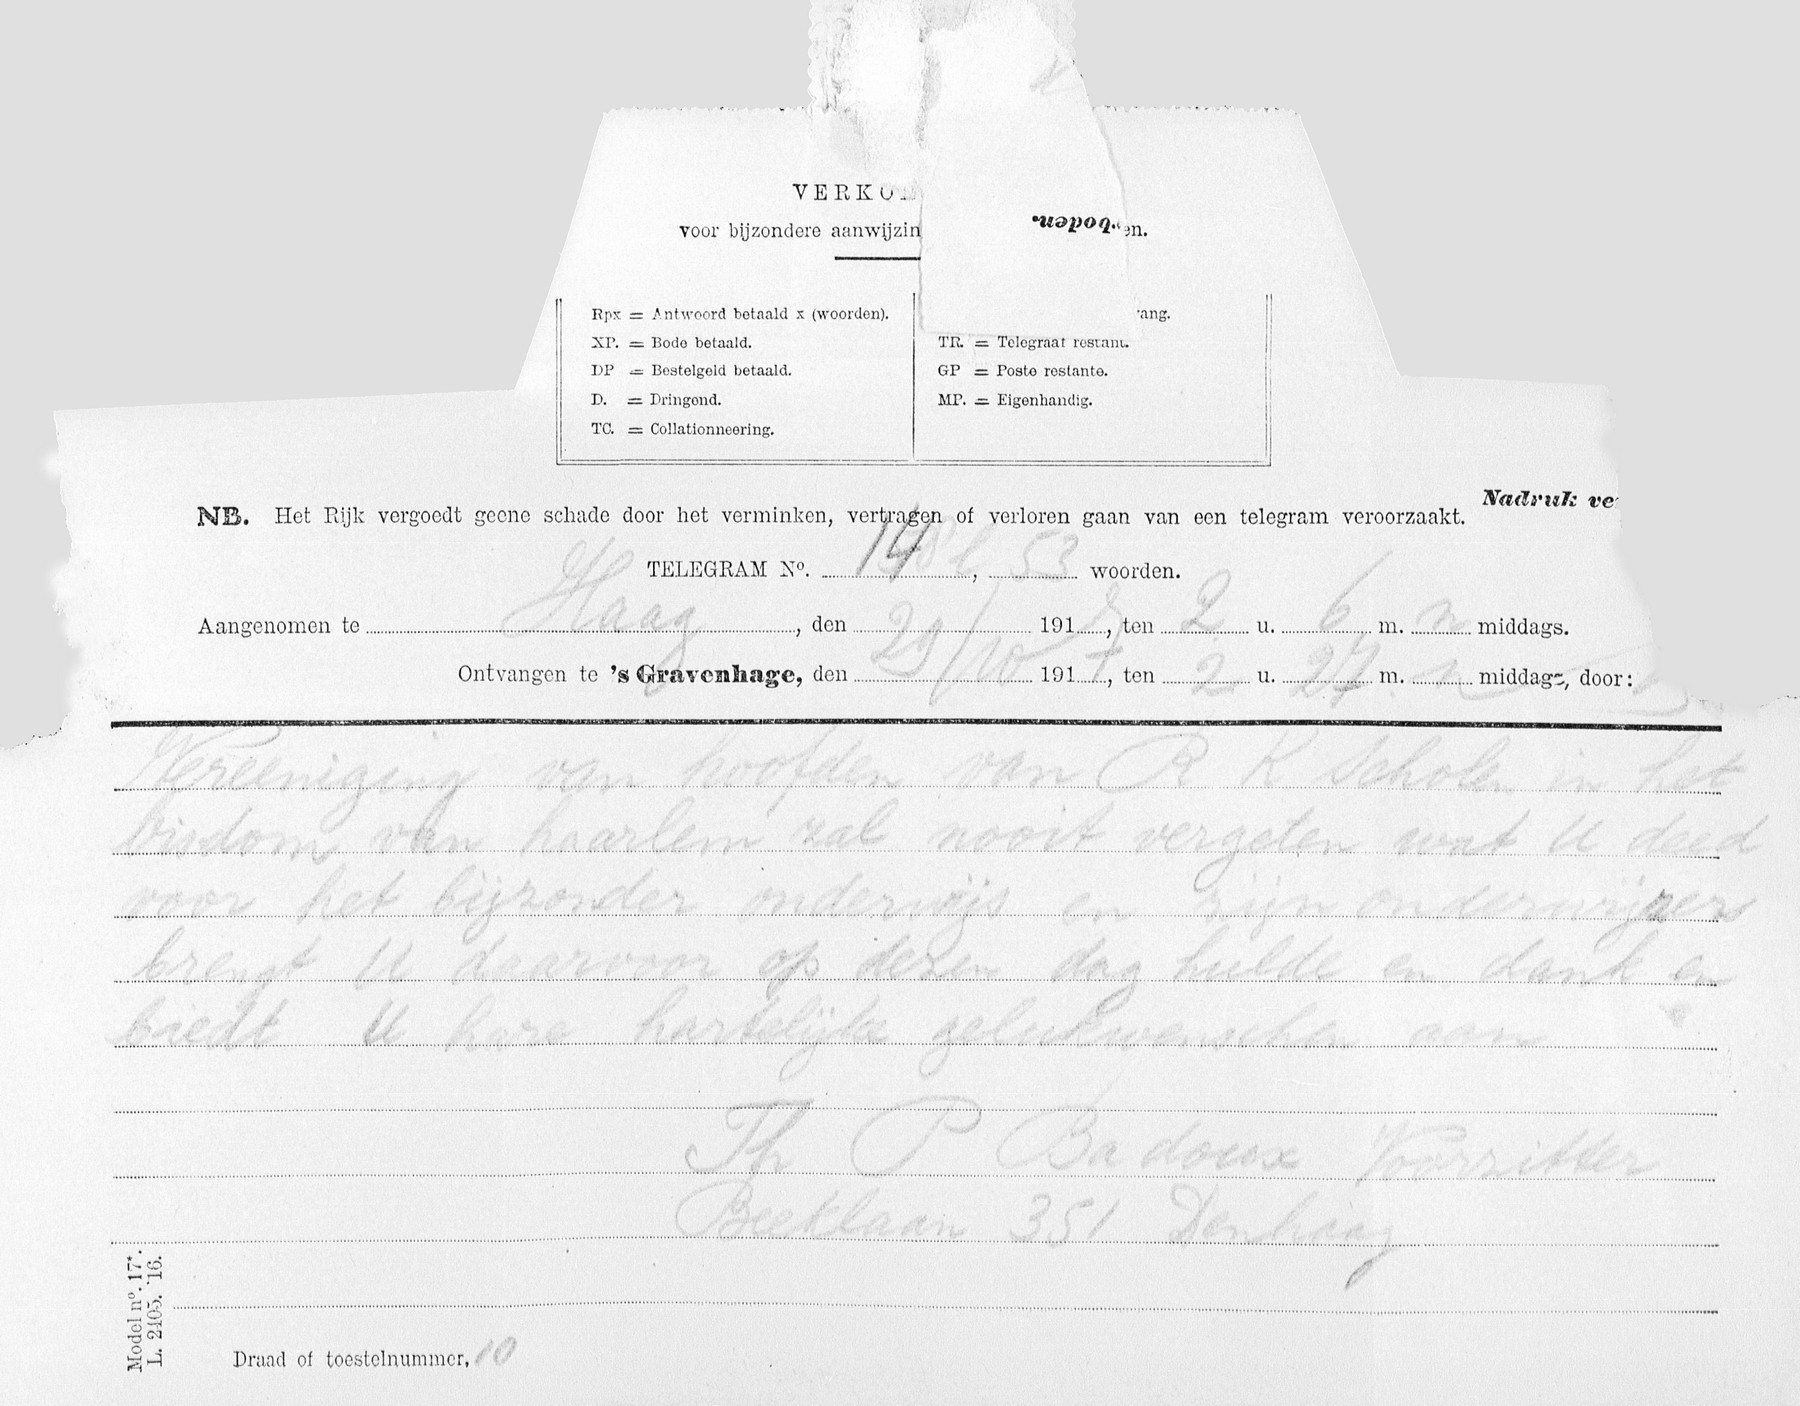 VERKO
voor bijzondere aanwijzin en.
boden.
Rpx = Antwoord betaald x (woorden).
XP. = Bode betaald.
DP = Bestelgeld betaald.
D. = Dringend.
TC. = Collationneering.
ang.
TR. = Telegraaf restant.
GP = Poste restante.
MP. = Eigenhandig.
Nadruk ve
NB. Het Rijk vergoedt geene schade door het verminken, vertragen of verloren gaan van een telegram veroorzaakt.
TELEGRAM No. 14, 53 woorden.
Aangenomen te Haag, den 29/10 191, ten 2 u. 6 m. n middags.
Ontvangen te 's Gravenhage, den 191 7, ten 2 u. 27 m. n middags, door:
Vereeniging van hoofden van R K scholen in het
bisdom van haarlem zal nooit vergeten wat U deed
voor het bijzonder onderwijs en zijn onderwijzers
brengt U daarvoor op dezen dag hulde en dank en
biedt U hare hartelijke gelukwenschen aan
Th P Badoux Voorzitter
Beeklaan 351 Denhaag
Model no. 17*.
L. 2405. '16.
Draad of toestelnummer, 10